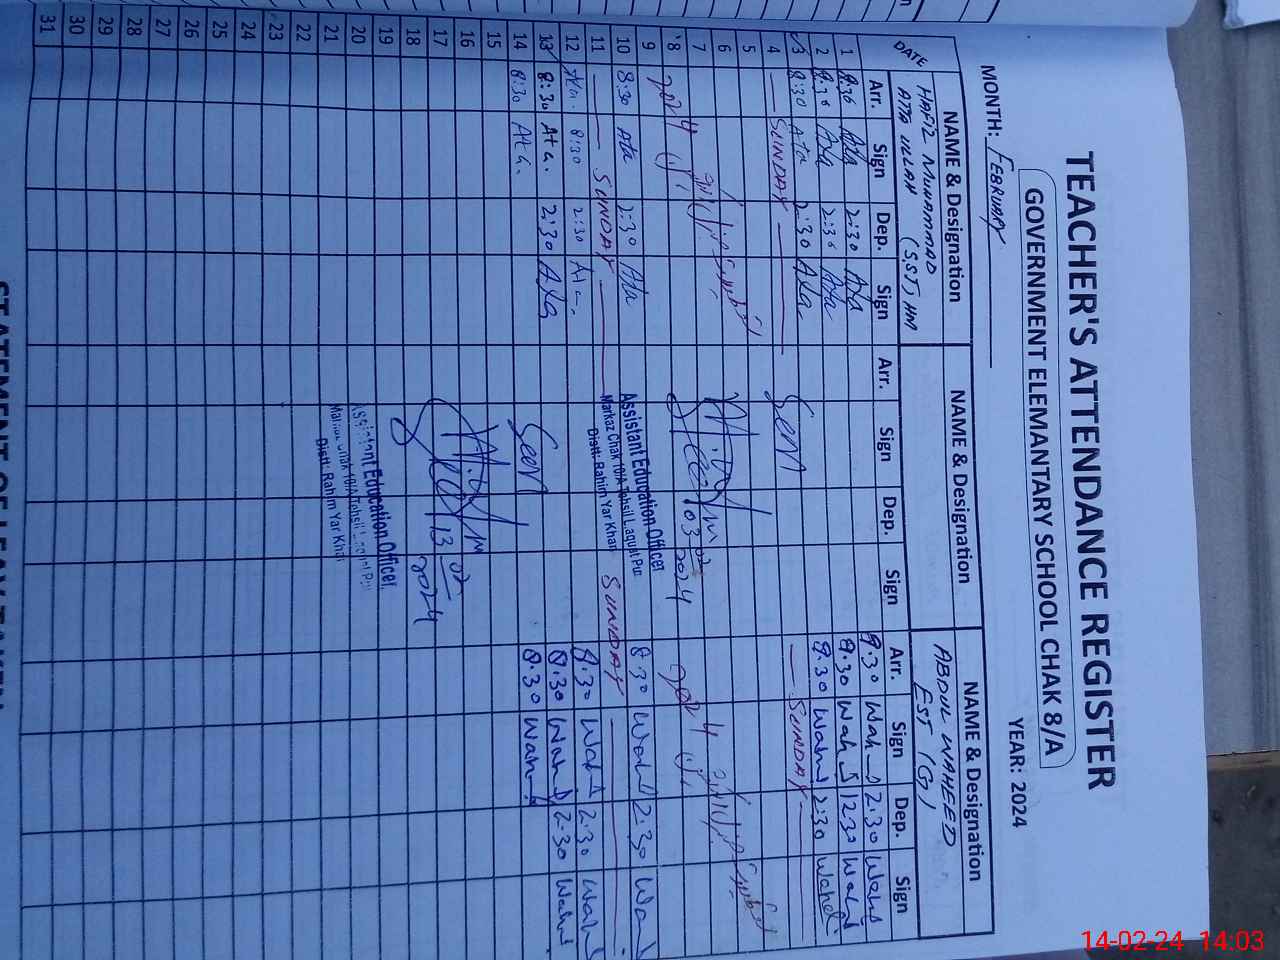 TEACHER'S ATTENDANCE REGISTER
GOVERNMENT ELEMANTARY SCHOOL CHAK 8/A
MONTH: FEBRUARY YEAR: 2024
NAME & Designation NAME & Designation NAME & Designation
HAFIZ MUHAMMAD ABDUL WAHEED
ATTA ULLAH (SST) HM EST (G)
DATE Arr. Sign Dep. Sign Arr. Sign Dep. Sign Arr. Sign Dep. Sign
1 8:30 Ata 2:30 Ata 8.30 Wahd 2.30 Wahd
2 8:30 Ata 2:30 Ata 8.30 Wahd 2.30 Wahd
3 8:30 Ata 2:30 Ata 8.30 Wahd 2:30 Wahd
4 SUNDAY Seen SUNDAY
5
6
7 03 02 2024
8 2024 2024
9 8:30 Wahd 2:30 Wahd
10 8:30 Ata 2:30 Ata
Assistant Education Officer
Markaz Chak 10/A Tehsil Liaquat Pur
Distt: Rahim Yar Khan
11 SUNDAY SUNDAY 8.30 Wahd 2.30 Wahd
12 Ata. 8:30 2:30 Ata. 8.30 Wahd 2.30 Wahd
13 8:30 Ata. 2:30 Ata 8.30 Wahd
14 8:30 Ata. Seen
15
16
17 13 02 2024
18
19
Assistant Education Officer
Markaz Chak 10/A Tehsil Liaquat Pur
Distt: Rahim Yar Khan
20
21
22
23
24
25
26
27
28
29
30
31
STATEMENT OF LEAV TAKEN
14-02-24 14:03